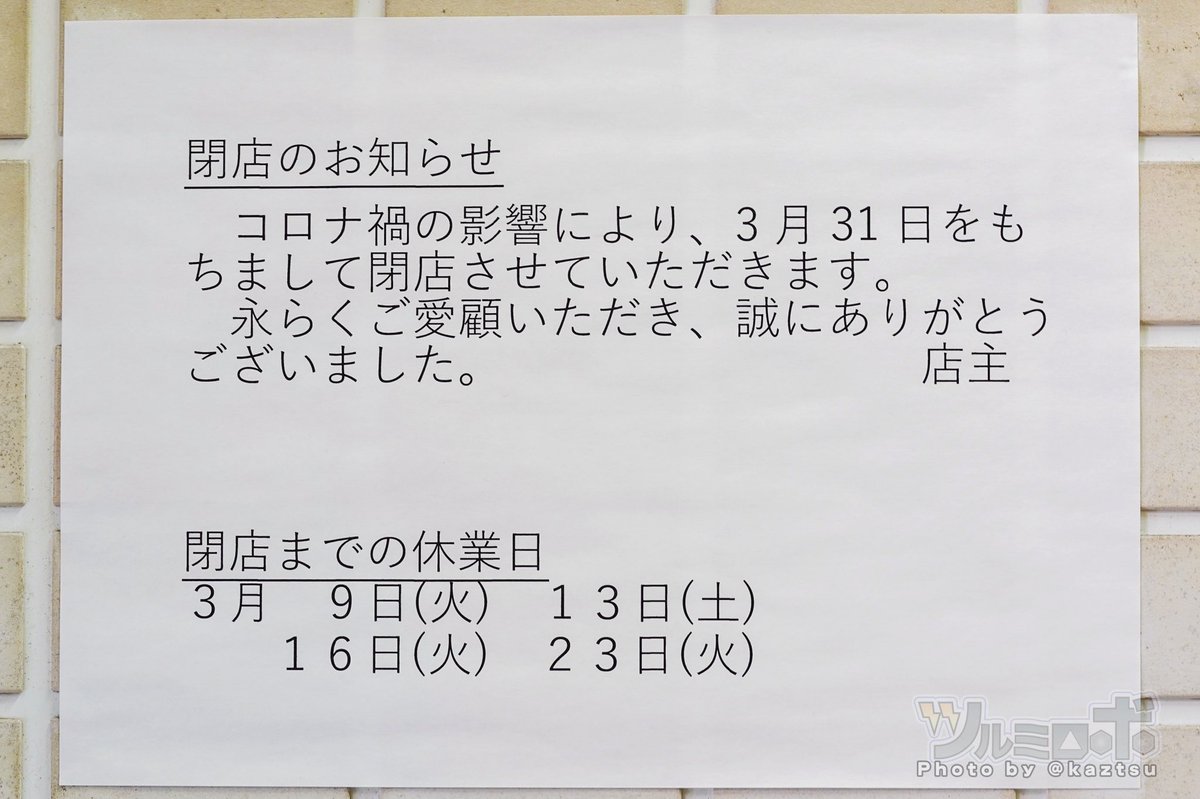 閉店のお知らせ
　コロナ禍の影響により、3月31日をも
ちまして閉店させていただきます。
　永らくご愛顧いただき、誠にありがとう
ございました。　　　　　　　　　店主
閉店までの休業日
３月　９日(火)　１３日(土)
　　１６日(火)　２３日(火)
ツルミロボ
Photo by @kaztsu